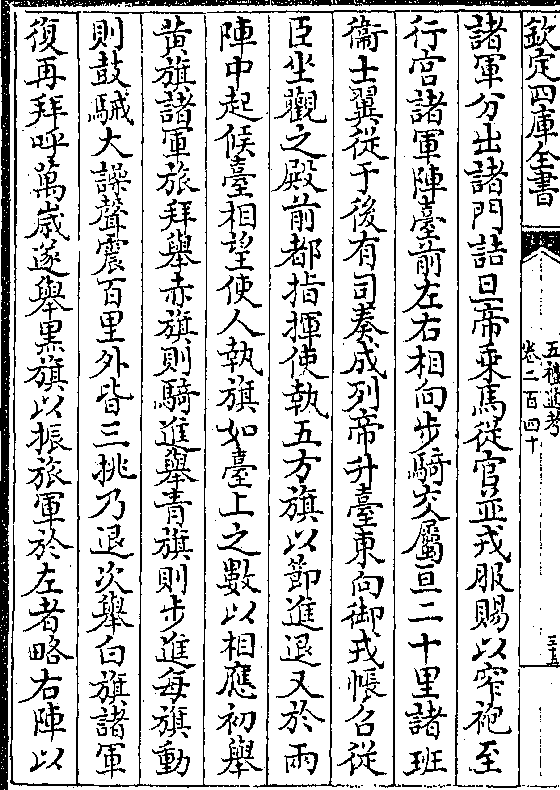 欽定四庫全書
五禮通考
卷二百四十
諸軍分出諸門詰旦帝乘馬從官並戎服賜以窄袍至
行宫諸軍陣臺前左右相向步騎交屬亘二十里諸班
衞士翼從于後有司奏成列帝升臺東向御戎帳召從
臣坐觀之殿前都指揮使執五方旗以節進退又於兩
陣中起候臺相望使人執旗如臺上之數以相應初舉
黄旗諸軍旅拜舉赤旗則騎進舉青旗則步進每旗動
則鼓駴大譟聲震百里外皆三挑乃退次舉白旗諸軍
復再拜呼萬歲遂舉黑旗以振旅軍於左者略右陣以